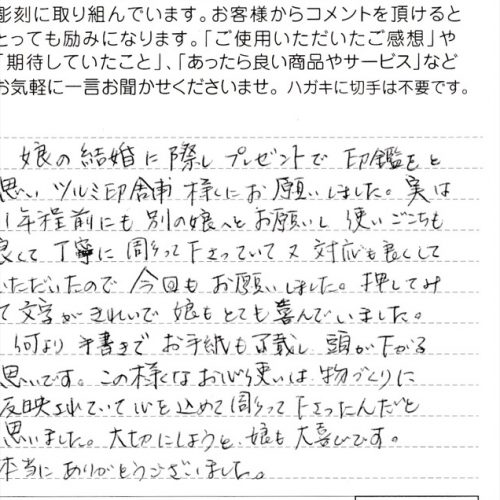 彫刻に取り組んでいます。お客様からコメントを頂けると
とっても励みになります。「ご使用いただいたご感想」や
「期待していたこと」、「あったら良い商品やサービス」など
お気軽に一言お聞かせくださいませ。ハガキに切手は不要です。
娘の結婚に際しプレゼントで印鑑をと
思い ツルミ印舗 様にお願いしました。実は
1年程前にも別の娘へとお願いし使いごこちも
良くて丁寧に彫って下さっていて又対応も良くして
いただいたので今回もお願いしました。押してみ
て文字がきれいで娘もとても喜んでいました。
何より手書きでお手紙も頂戴し頭が下がる
思いです。この様なお心使いは物づくりに
反映されていて心を込めて彫って下さったんだと
思いました。大切にしようと、娘も大喜びです。
本当にありがとうございました。